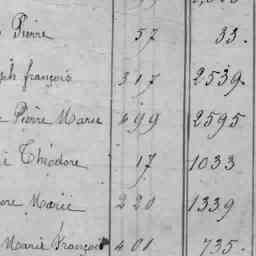 Pierre 57 33.
ph françois 317 2539.
Pierre Marie 699 2595
Théodore 17 1033
ore Marie 220 1339
Marie François 401 735.